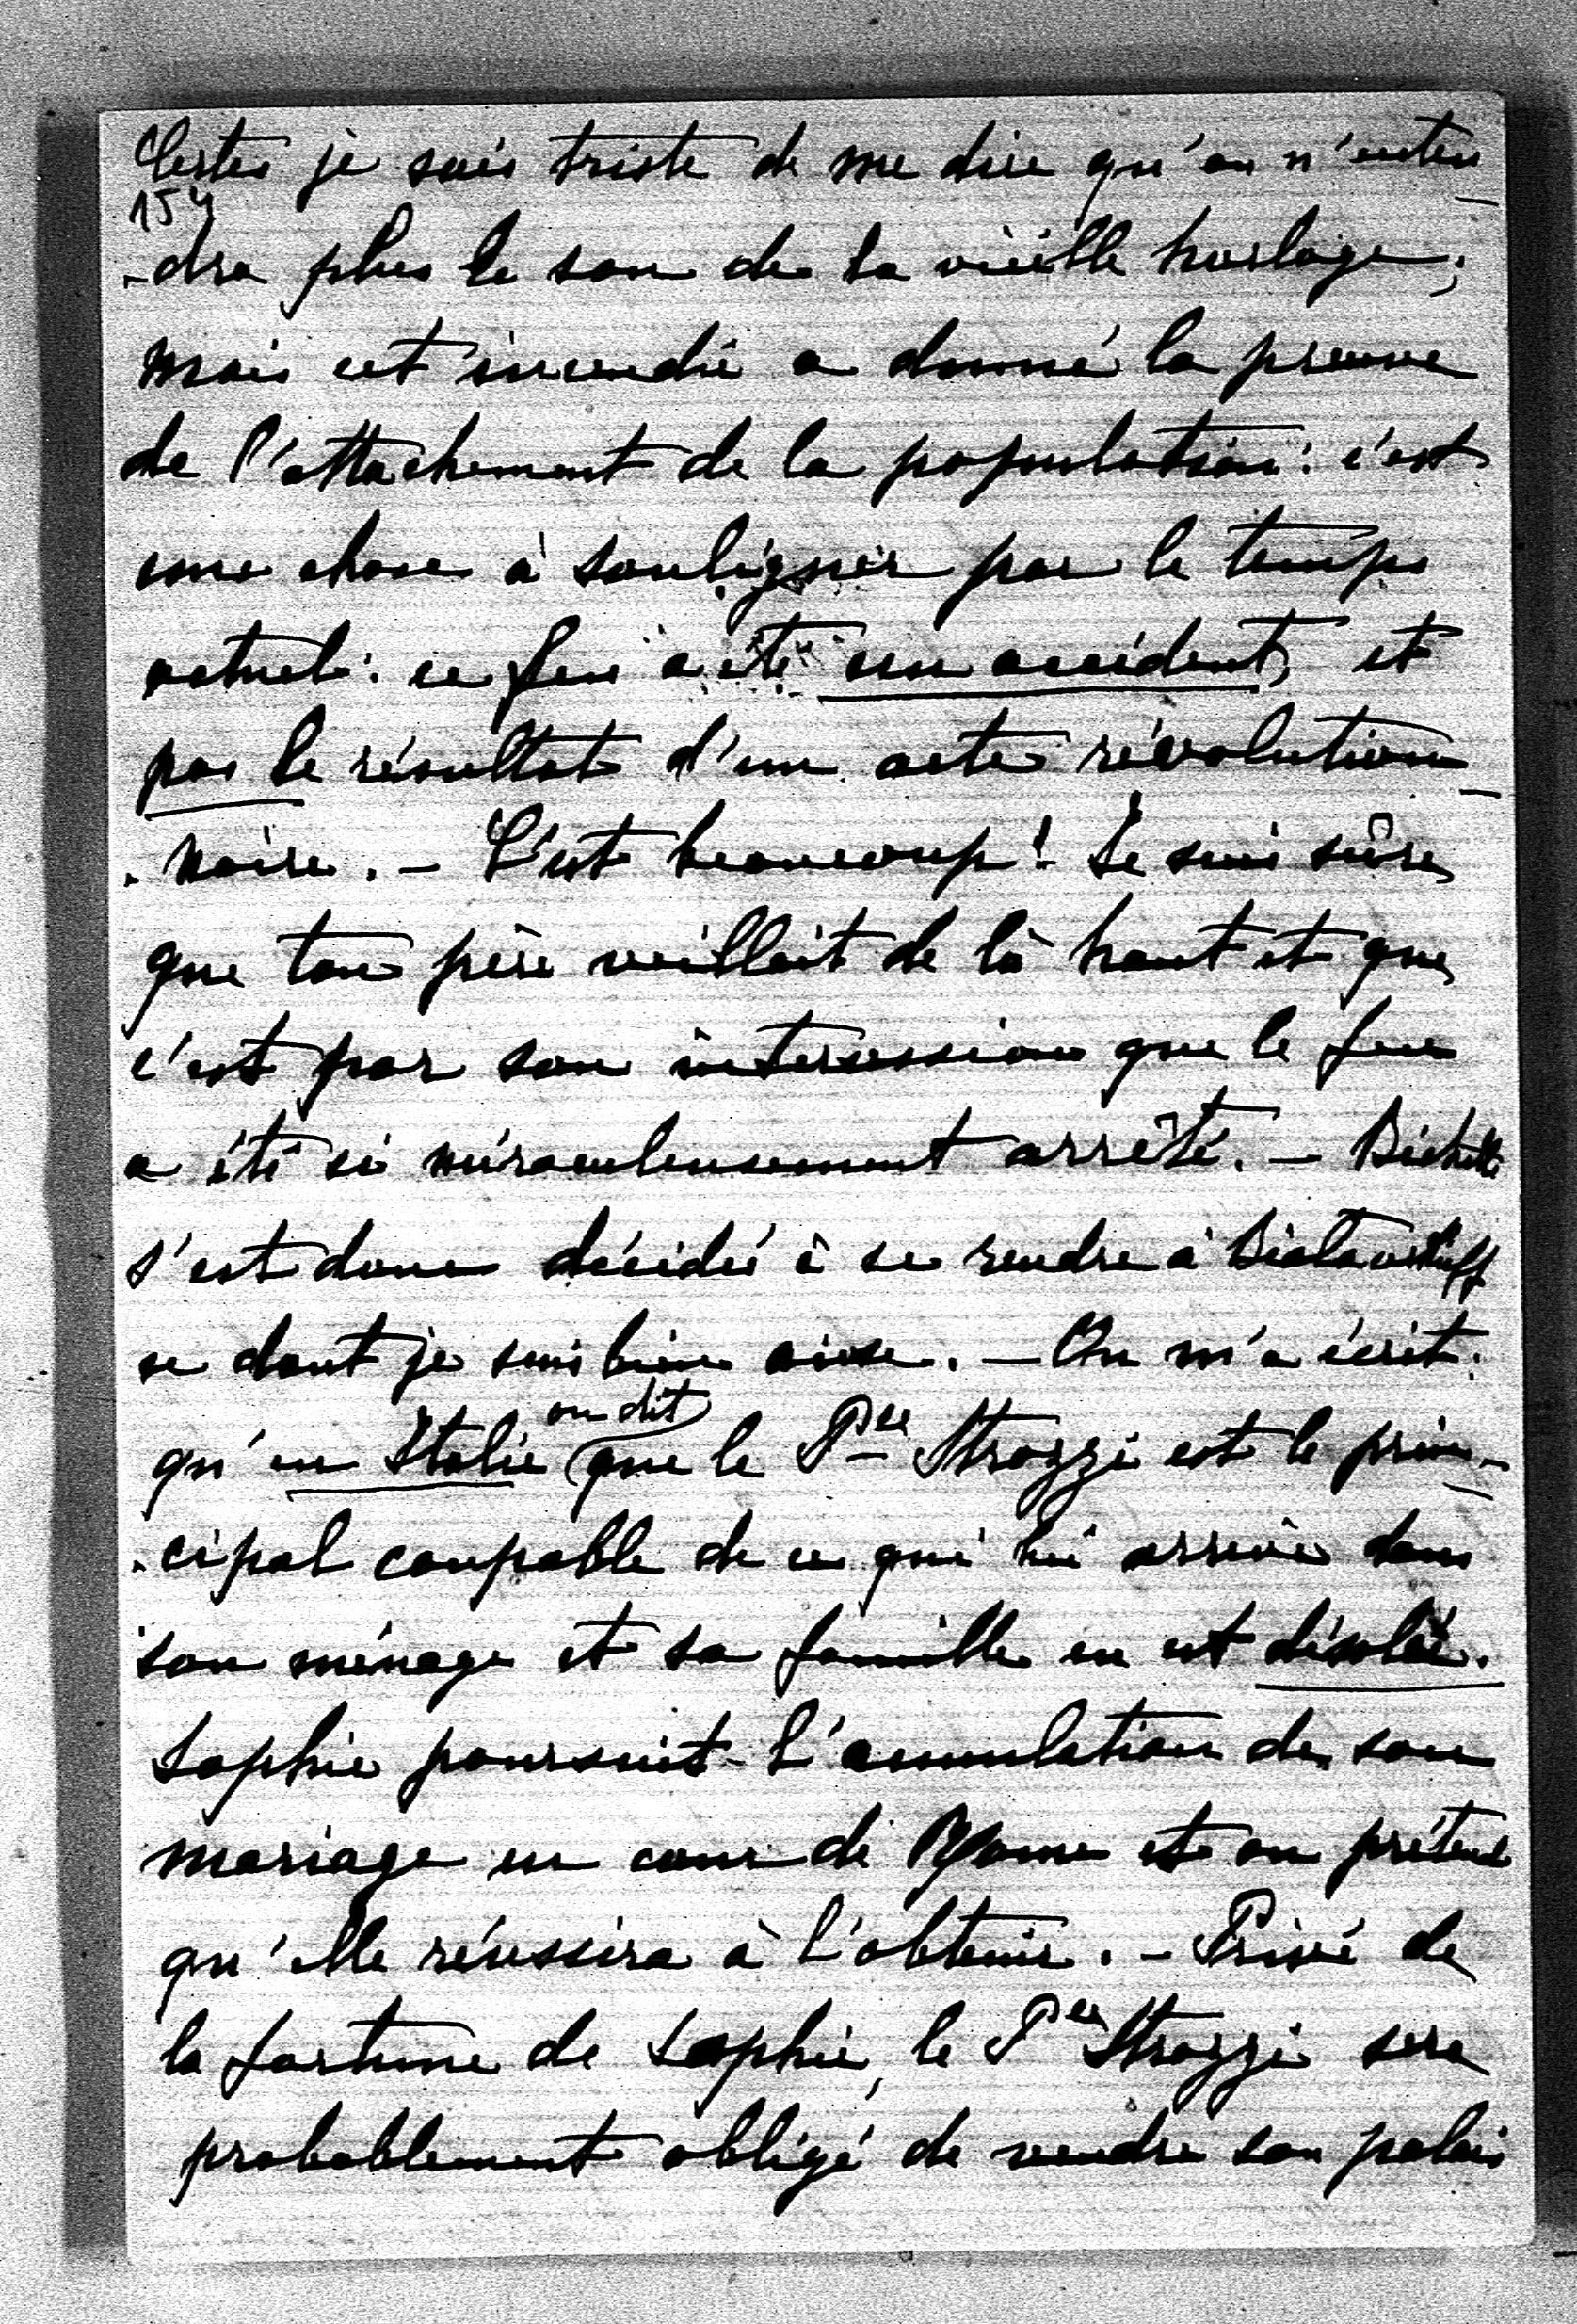 Certes je suis triste de me dire qu'on n'enten-
154
-dra plus le son de la vieille horloge;
mais cet incendie a donné la preuve
de l'attachement de la population: c'est
une chose à souligner par le temps
actuel: ce feu a été un accident, et
pas le résultat d'un acte révolution-
-naire. - C'est beaucoup! Je suis sûre,
que ton père veillait de là haut et que,
c'est par son intercession que le feu
a été si miraculeusement arrêté. - Bichette
s'est donc décidée à se rendre à
ce dont je suis bien aise. - On m'a écrit:
qu'en Italie on dit que le Pce Strozzi est le prin-
-cipal coupable de ce qui lui arrive dans
son ménage et sa famille en est désolée.
Sophie poursuit l'annulation de son
mariage en cour de Rome et on prétend
qu'elle réussira à l'obtenir. - Privé de
la fortune de Sophie, le Pce Strozzi sera
probablement obligé de vendre son palais